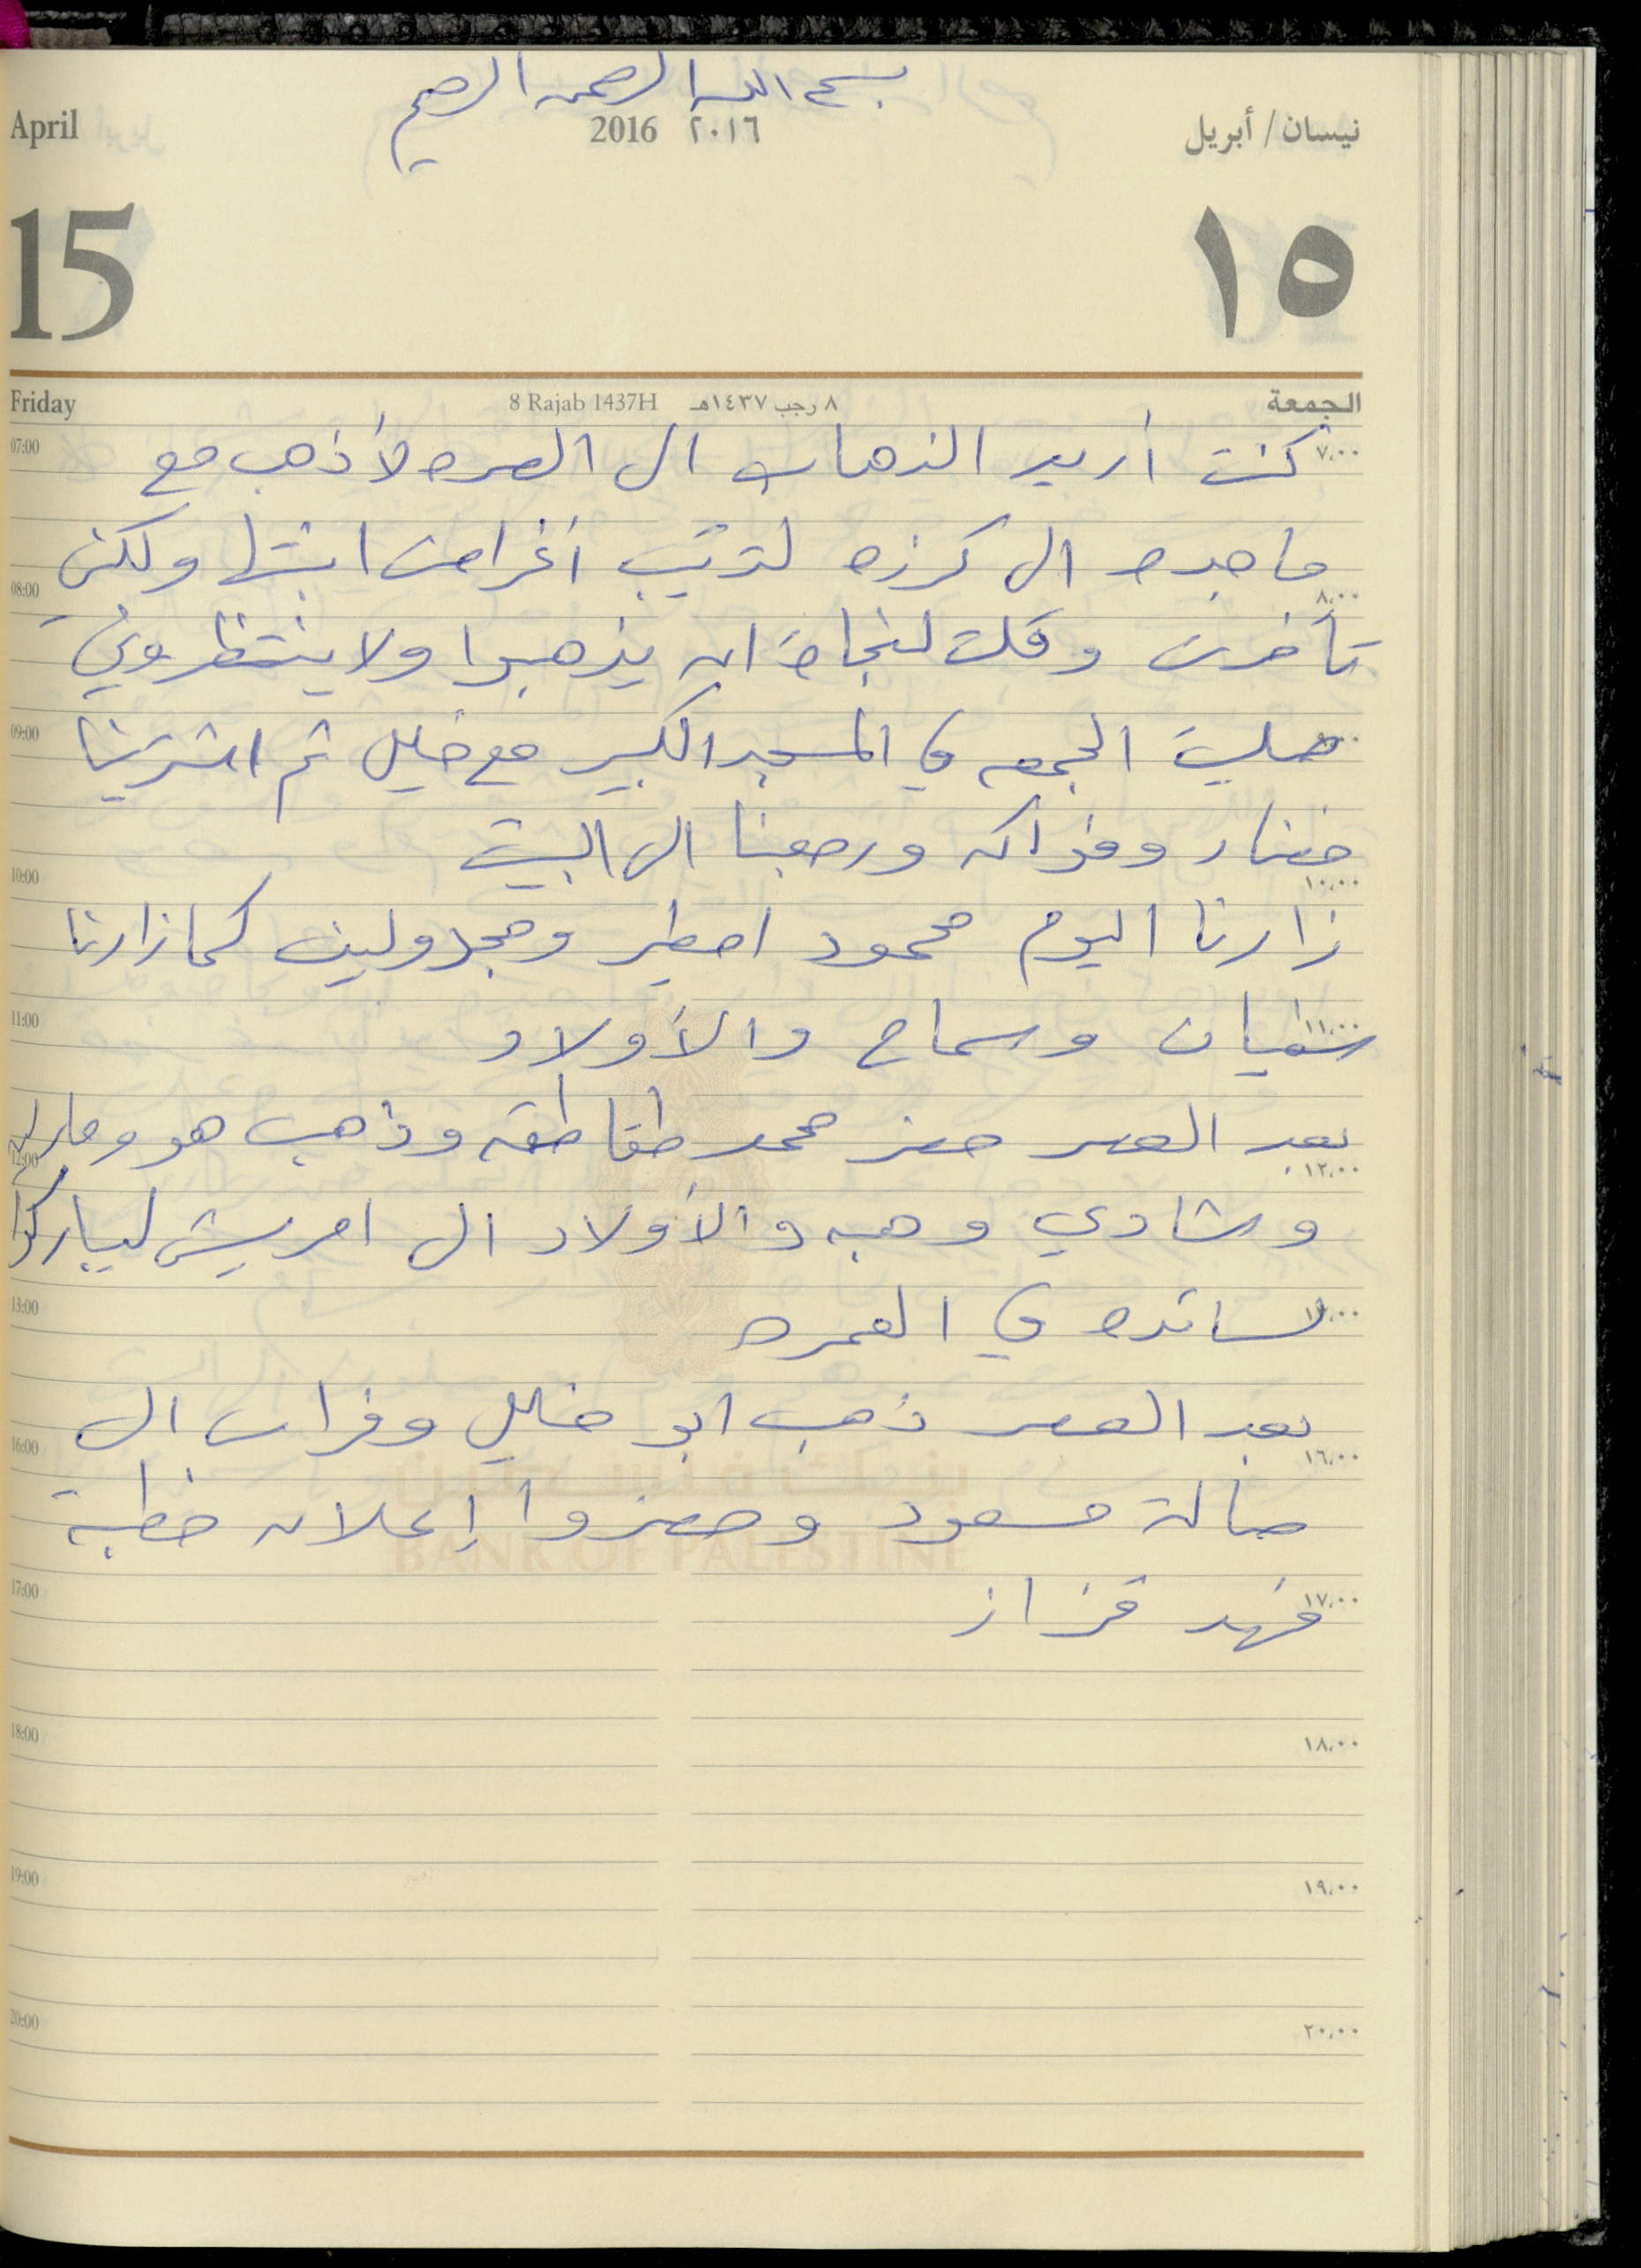 بسم الله الرحمن الرحيم
April 2016 ٢٠١٦ نيسان / أبريل
15 ١٥
Friday 8 Rajab 1437H ٨ رجب ١٤٣٧هـ الجمعة
07:00 ٧,٠٠
كنت أريد الذهاب الى لأذهب مع
ماجده الى كرزه لترتيب أغراض ابنتها ولكن
08:00 ٨,٠٠
تأخرت وقلت لنجاة ان يذهبوا ولا ينتظروني
09:00
صليت الجمعه في المسجد الكبير مع خليل ثم اشترينا
خضار وفواكه ورجعنا الى البيت
10:00 ١٠,٠٠
زارنا اليوم محمود اصطير ومجدولين كما زارنا
11:00 ١١,٠٠
سفيان وسماح والأولاد
بعد العصر حضر محمد طقاطقه وذهب هو
12:00 ١٢,٠٠
وشادي وهبه والأولاد الى امريش ليباركوا
13:00
لسائده في العمره
بعد العصر ذهب ابو خليل وفراس الى
16:00 ١٦,٠٠
بنك فلسطين
صالة مسعود وحضروا إعلان خطبة
BANK OF PALESTINE
17:00 ١٧,٠٠
فهد قزاز
18:00 ١٨,٠٠
19:00 ١٩,٠٠
20:00 ٢٠,٠٠